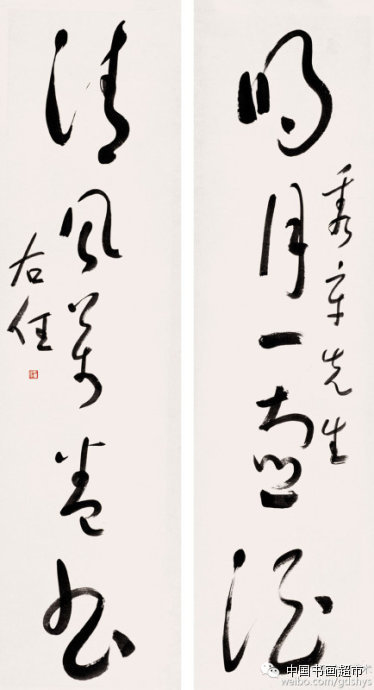 明月一壺酒
秀章先生
清風萬卷書
右任
中国书画超市
weibo.com/gdshys